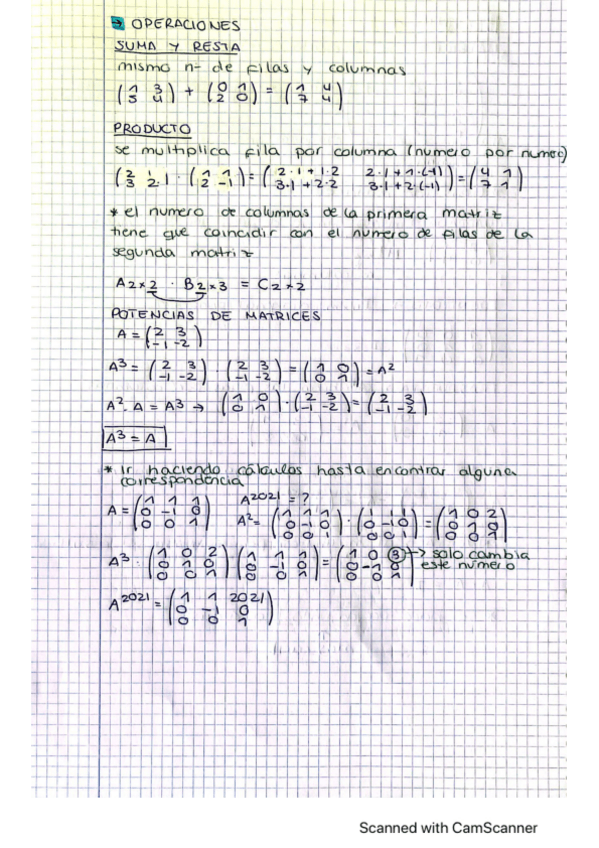 → OPERACIONES
SUMA Y RESTA
mismo nº de filas y columnas
(1 3 / 5 4) + (0 1 / 2 0) = (1 4 / 7 4)
PRODUCTO
se multiplica fila por columna (numero por numero)
(2 1 / 3 2) · (1 1 / 2 -1) = (2·1+1·2 2·1+1·(-1) / 3·1+2·2 3·1+2·(-1)) = (4 1 / 7 1)
* el numero de columnas de la primera matriz
tiene que coincidir con el numero de filas de la
segunda matriz
A2x2 · B2x3 = C2x2
POTENCIAS DE MATRICES
A = (2 3 / -1 -2)
A³ = (2 3 / -1 -2) · (2 3 / -1 -2) = (1 0 / 0 1) = A²
A² · A = A³ → (1 0 / 0 1) · (2 3 / -1 -2) = (2 3 / -1 -2)
A³ = A
* Ir haciendo cálculos hasta encontrar alguna
correspondencia
A = (1 1 1 / 0 -1 0 / 0 0 1) A²⁰²¹ = ?
A² = (1 1 1 / 0 -1 0 / 0 0 1) · (1 1 1 / 0 -1 0 / 0 0 1) = (1 0 2 / 0 1 0 / 0 0 1)
A³ · (1 0 2 / 0 1 0 / 0 0 1) (1 1 1 / 0 -1 0 / 0 0 1) = (1 0 3 / 0 -1 0 / 0 0 1) → solo cambia
este numero
A²⁰²¹ = (1 1 2021 / 0 -1 0 / 0 0 1)
Scanned with CamScanner